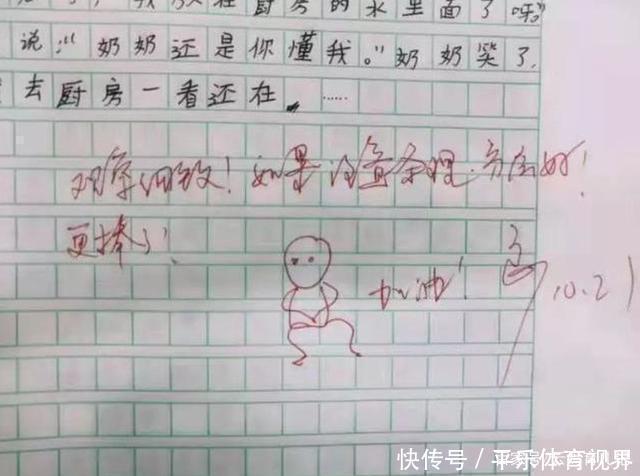 我放在厨房的水里面了呀。”
说：“奶奶还是你懂我。”奶奶笑了，
去厨房一看还在，……
观察细致！如果注意条理、分段好！
更棒了！
加油！
10.21
快传号／平乐体育视界